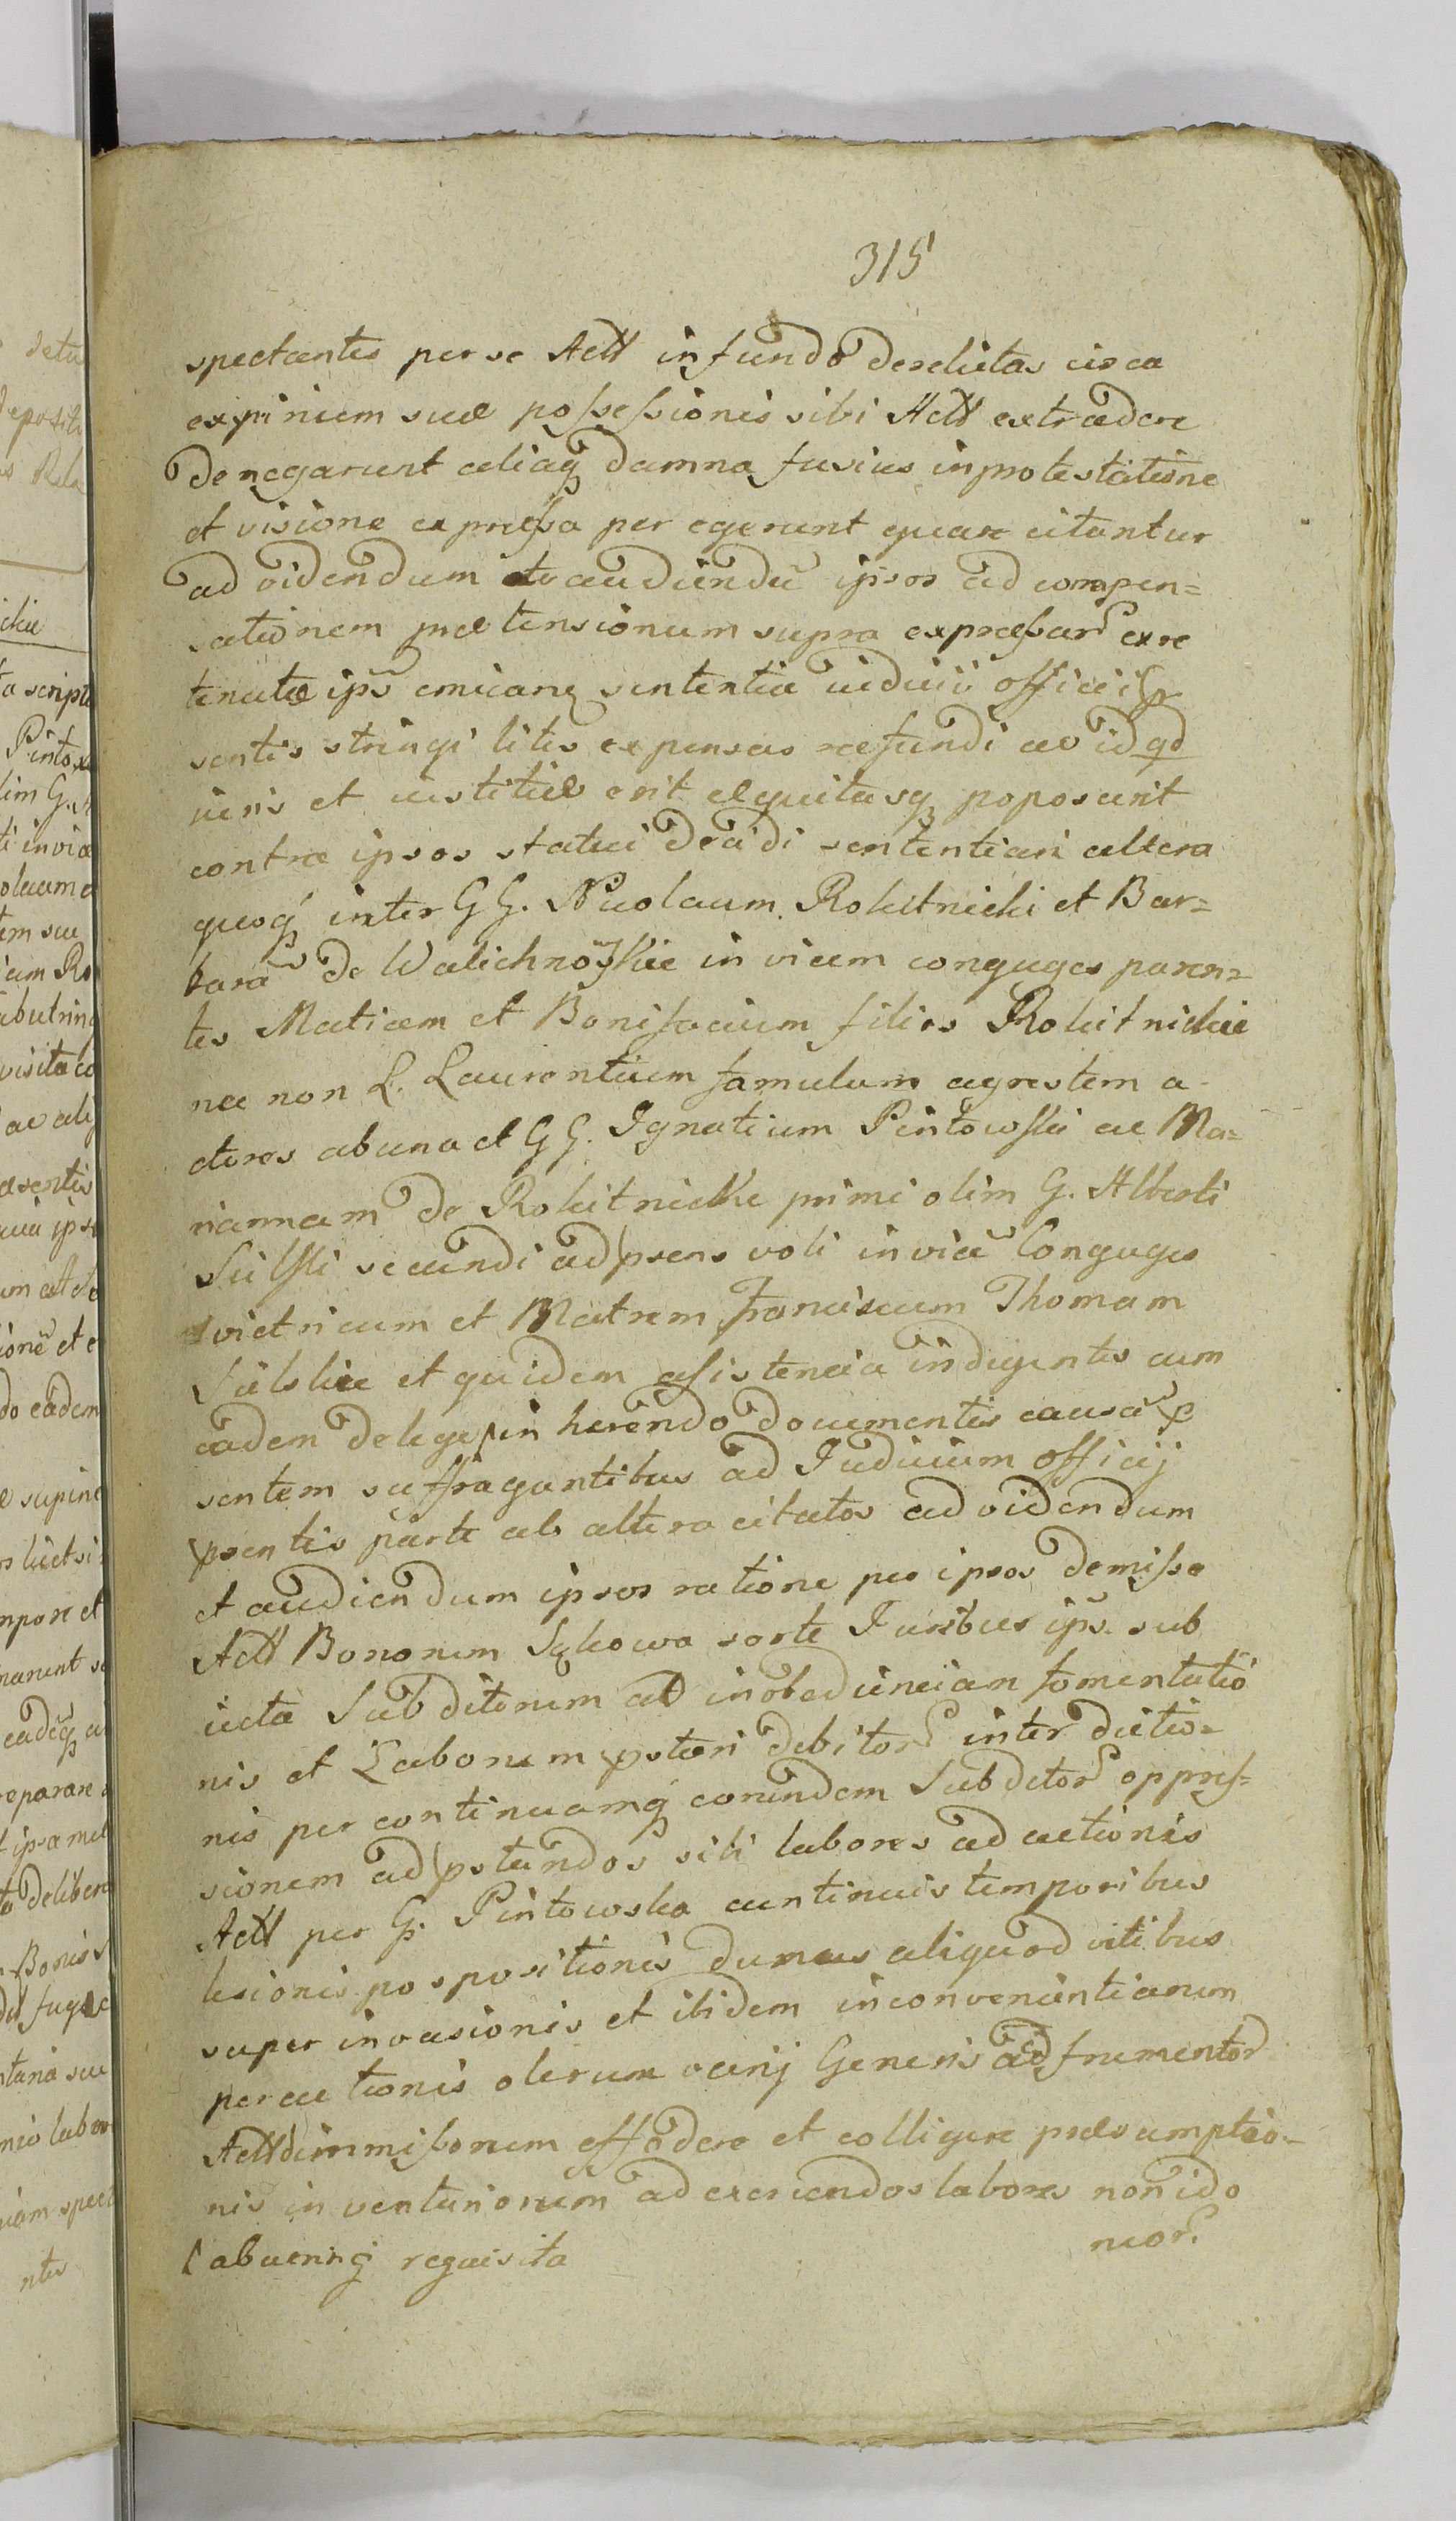 315
spectantes per se Actt in fundo derelictas circa
expirium suæ poſseſsionis sibi Actt extradere
denegarunt aliaq damna fusius in protestatione
et visione expreſsa per egerunt quare citantur
ad videndum et audiendũ ipsos ad compen=
sationem prætensionum supra expreſsar ex re
tentatæ ips emicanq sententiæ iudicii officii p
sentis stringi litis expensas refundi ac id qd
iuris et iustitiæ erit æquitasq poposcerit
contra ipsos statui decidi sententiari altera
quoq inter GG. Nicolaum Rokitnicki et Bar=
bara de Walichnoskie in vicem conguges paren=
tes Matiam et Bonifacium filios Rokitnickie
nec non L. Laurentium famulum agrestem a
ctores ab una et GG. Ignatium Pintowski ac Ma=
riannam de Rokitnickie primi olim G. Alberti
Sulski secundi ad psens voti in vicẽ Conguges
vietricum et Matrem Franciscum Thomam
Sulskie et quidem aſsistencia indigentes cum
eadem de lege in herendo documentis causã p
sentem suffragantibus ad Iudicium officij
psentis parte ab altera citatos ad videndum
et audiendum ipsos ratione per ipsos demiſsa
Actt Bonorum Sękowa sorte Iuribus ips. sub
iecta Subditorum ad inobediencian fomentatio
nis et Laborum pstari debitor interdictio=
nis per continuamq eorundem Subditor oppreſ=
sionem ad pstandos sibi labores ad actionis
Actt per G. Pintowska continuis temporibus
lesionis pospositionis domus aliquod vitibus
super invasionis et ibidem inconvenientiarum
percutionis olerum varij Generis ad frumentor
Actt dimmiſsorum effodere et colligere præsumptio=
nis inventariorum ad exercendos labores non ido
neor.
ab uering requisita